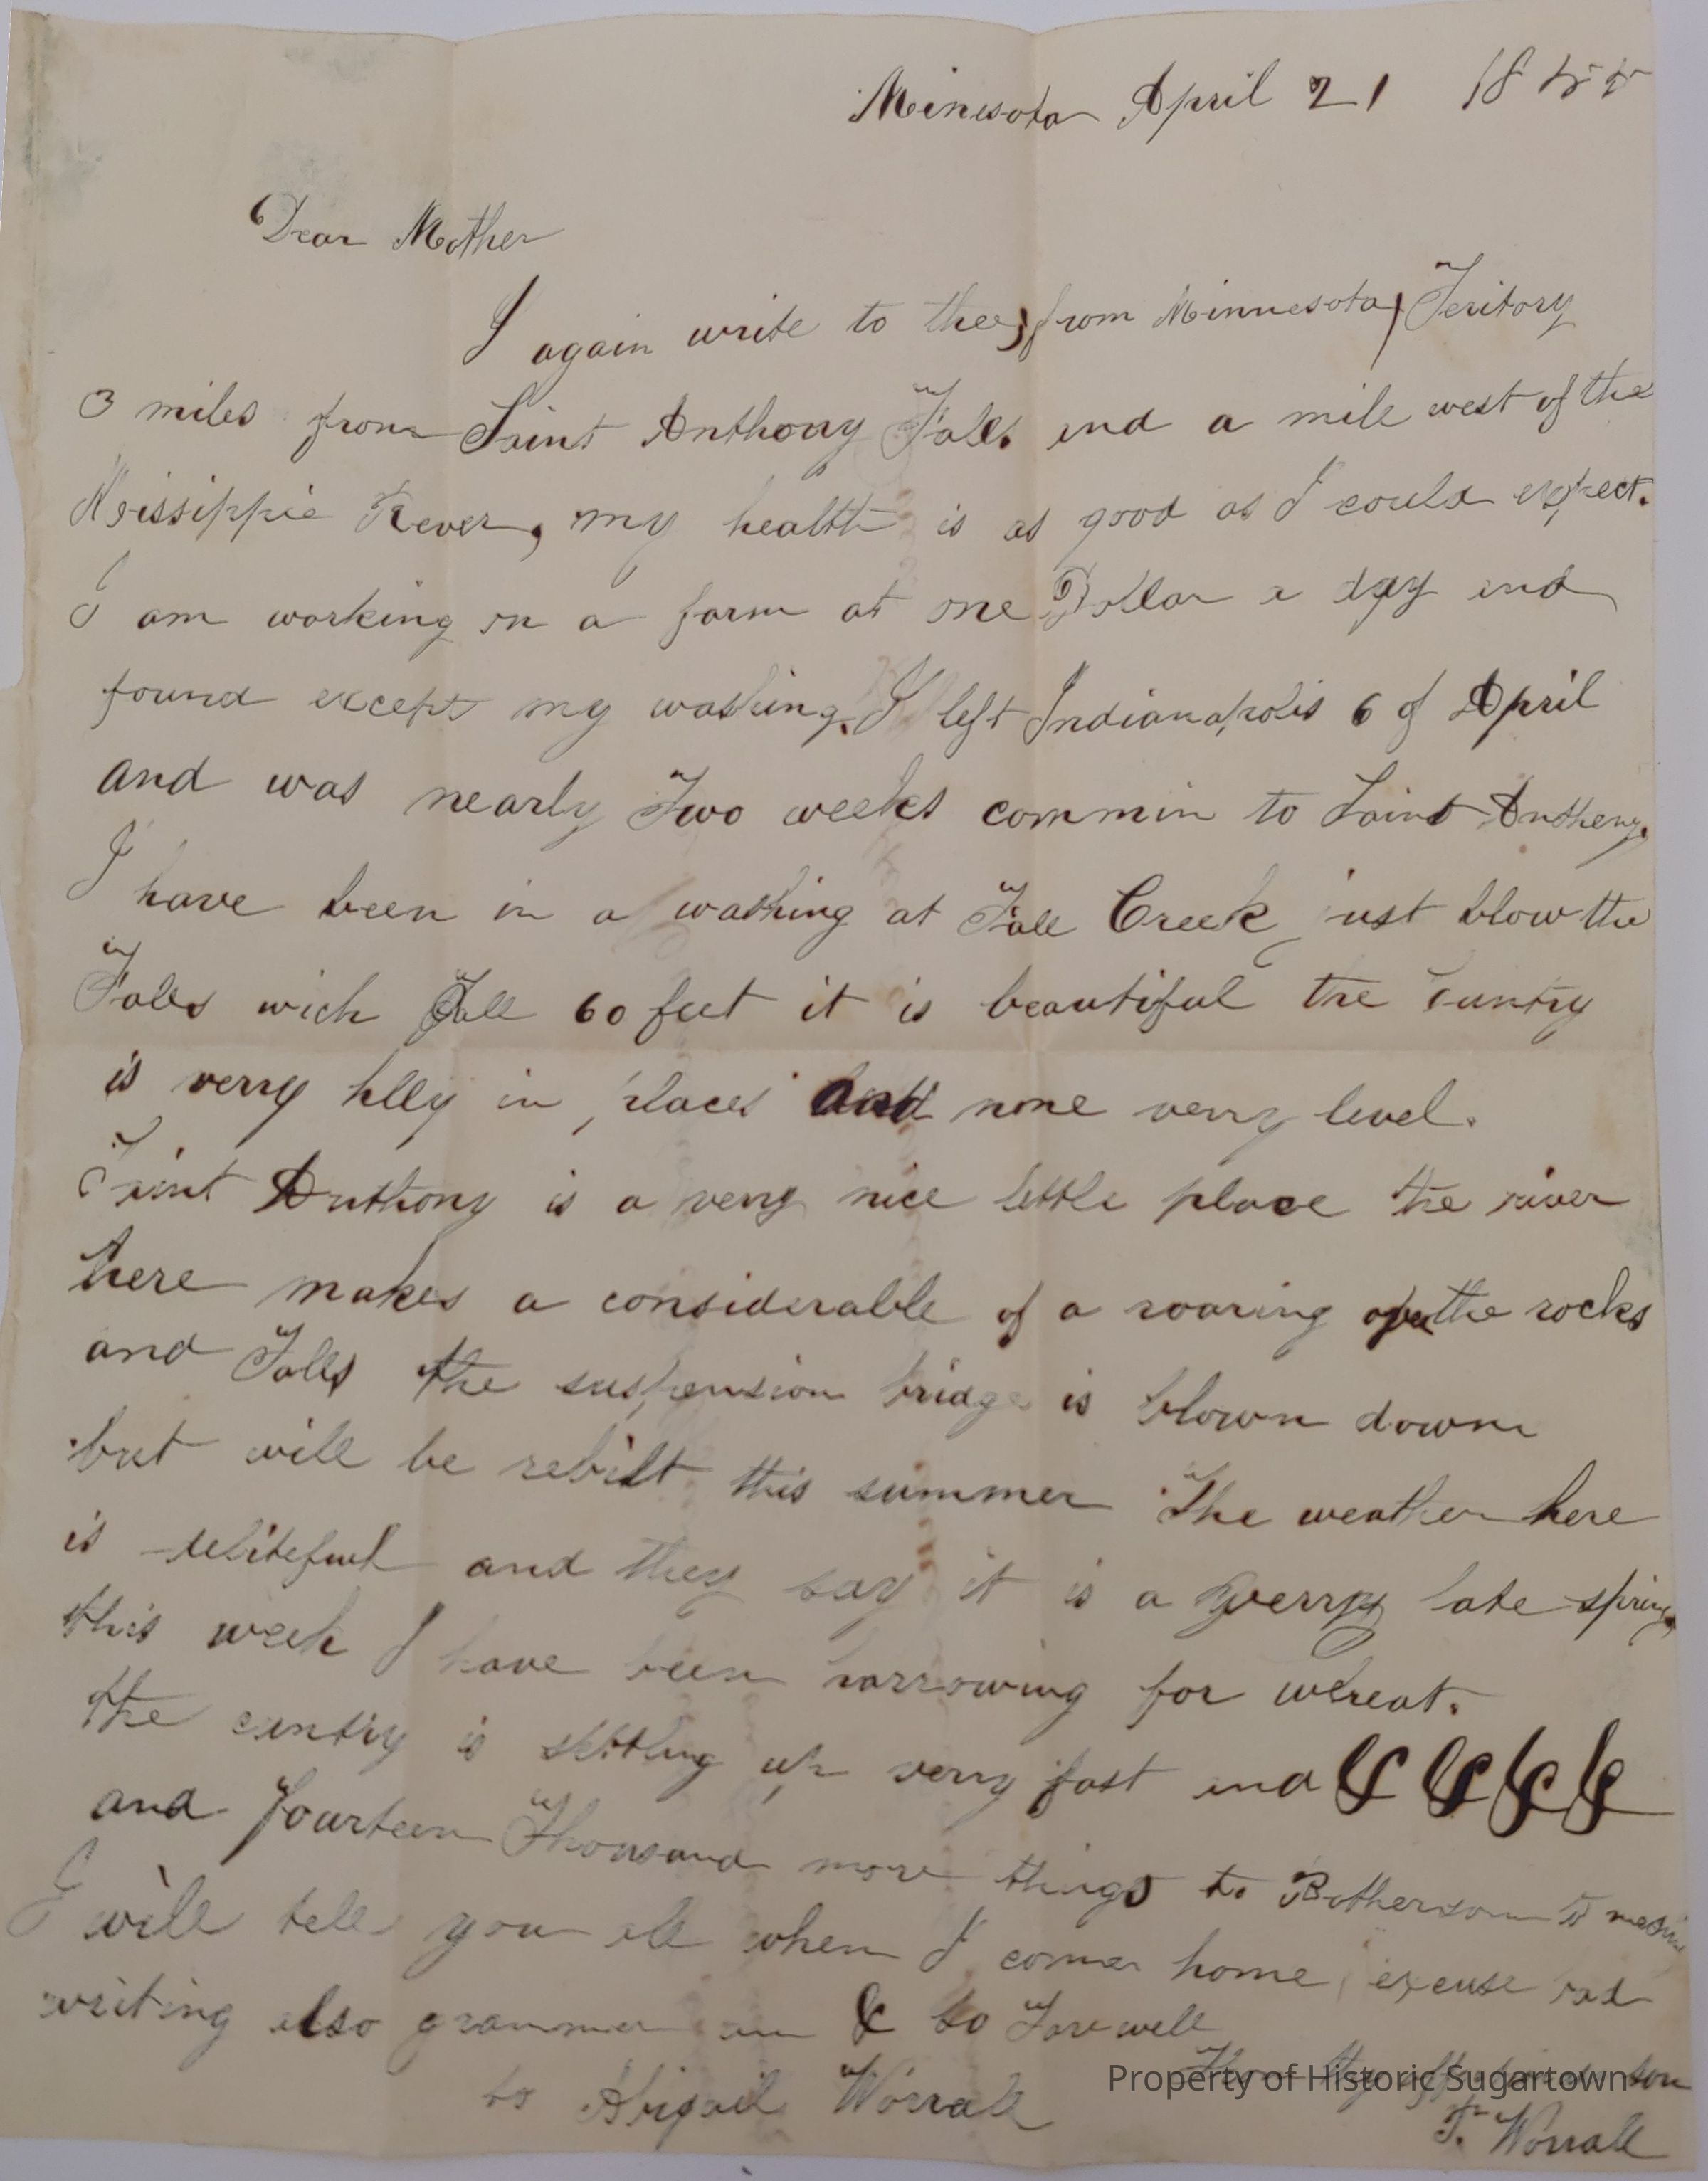 Minesota April 21 1855
Dear Mother
I again write to thee, from Minnesota, Teritory
3 miles from Saint Anthony Falls and a mile west of the
Meissippie River, my health is as good as I could expect.
I am working on a farm at one Dollar a day and
found except my washing. I left Indianapolis 6 of April
and was nearly Two weeks commin to Saint Antheny.
I have been in a washing at Fall Creek just blow the
Falls wich Fall 60 feet it is beautiful the cuntry
is verry hlly in places and none verry level.
Saint Anthony is a very nice little place the river
here makes a considerable of a roaring over the rocks
and Falls the suspension bridge is blown down
but will be rebilt this summer The weather here
is deliteful and they say it is a verry late spring,
this week I have been harrowing for wheat.
the cuntry is settling up very fast and & & & &
and Fourteen Thousand more things to Bothersom to
I will tell you all when I come home, excuse bad
writing also grammer & so Farewell
son
to Abigail Worrall
T. Worrall
Property of Historic Sugartown